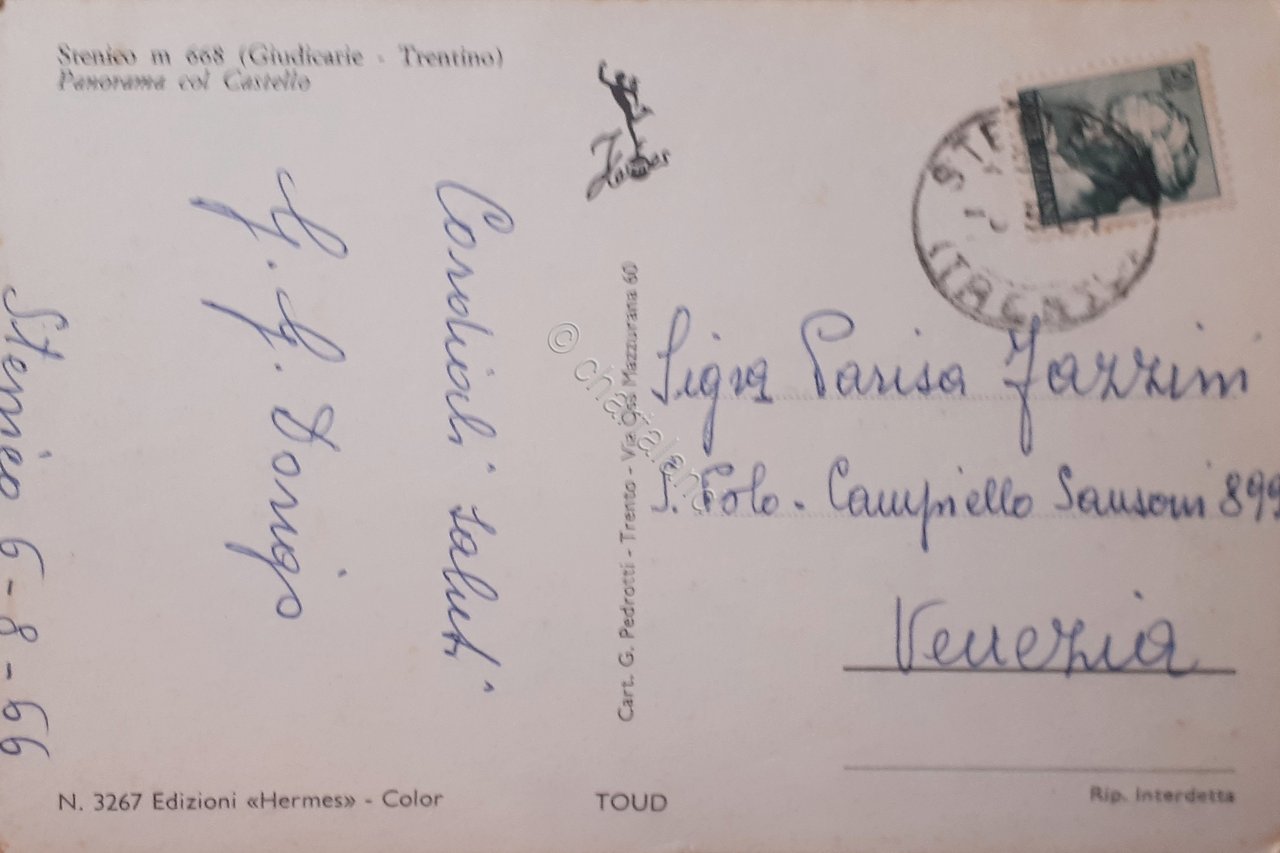 Stenico m 668 (Giudicarie - Trentino)
Panorama col Castello
Hermes
Stenico 6-8-66
Cordiali saluti
Cart. G. Pedrotti - Trento - Via Oss Mazzurana 60
© chartaland
STE
(TRENT
Sigra Parisa
S. Polo - Campiello Sansoni 899
Venezia
N. 3267 Edizioni «Hermes» - Color
TOUD
Rip. Interdetta